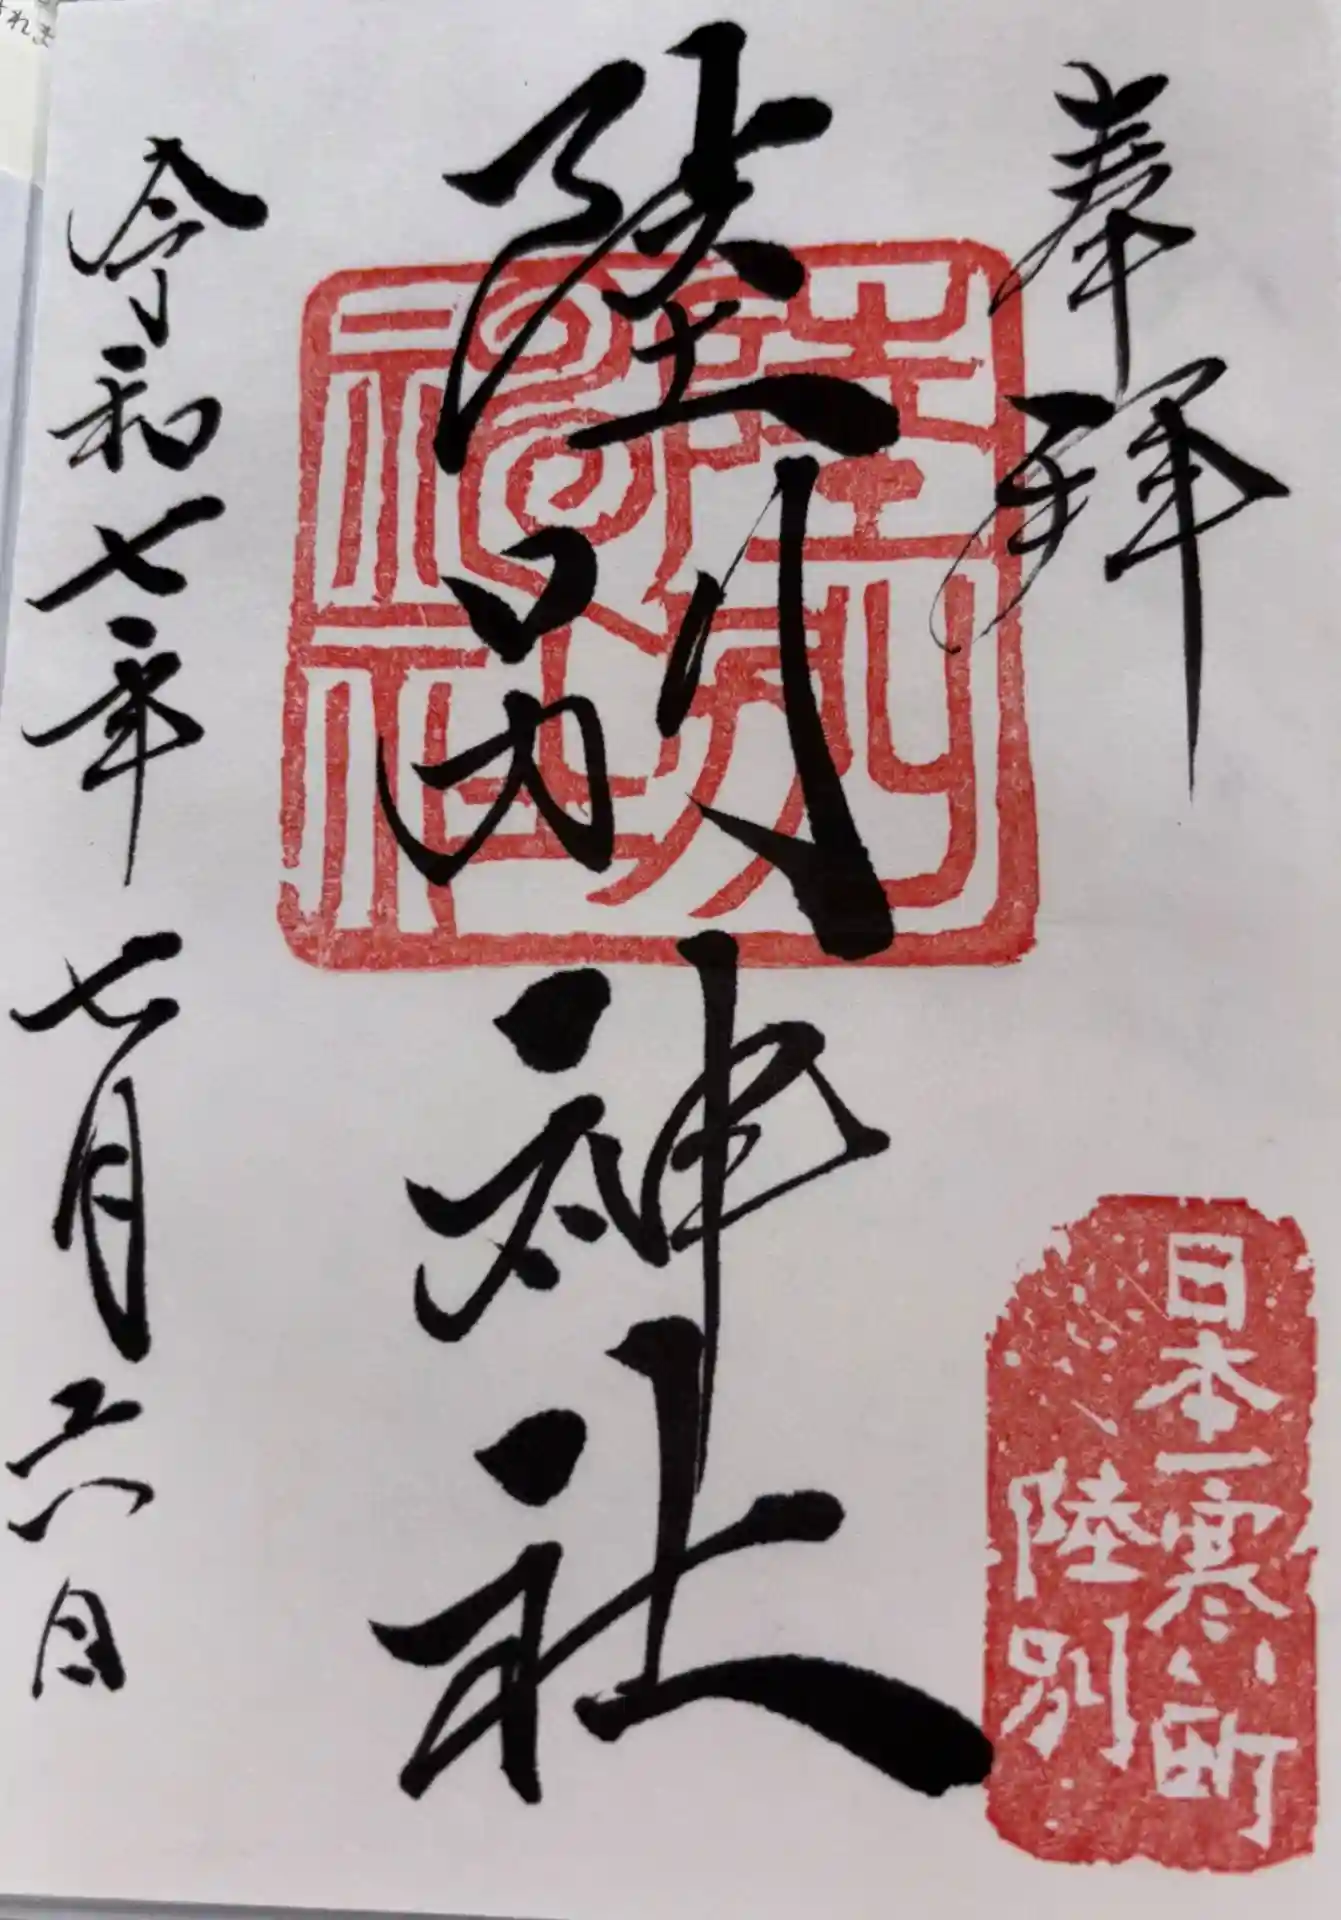 奉拝
陸別神社
陸別神社
令和七年 七月六日
日本一寒い町
陸別